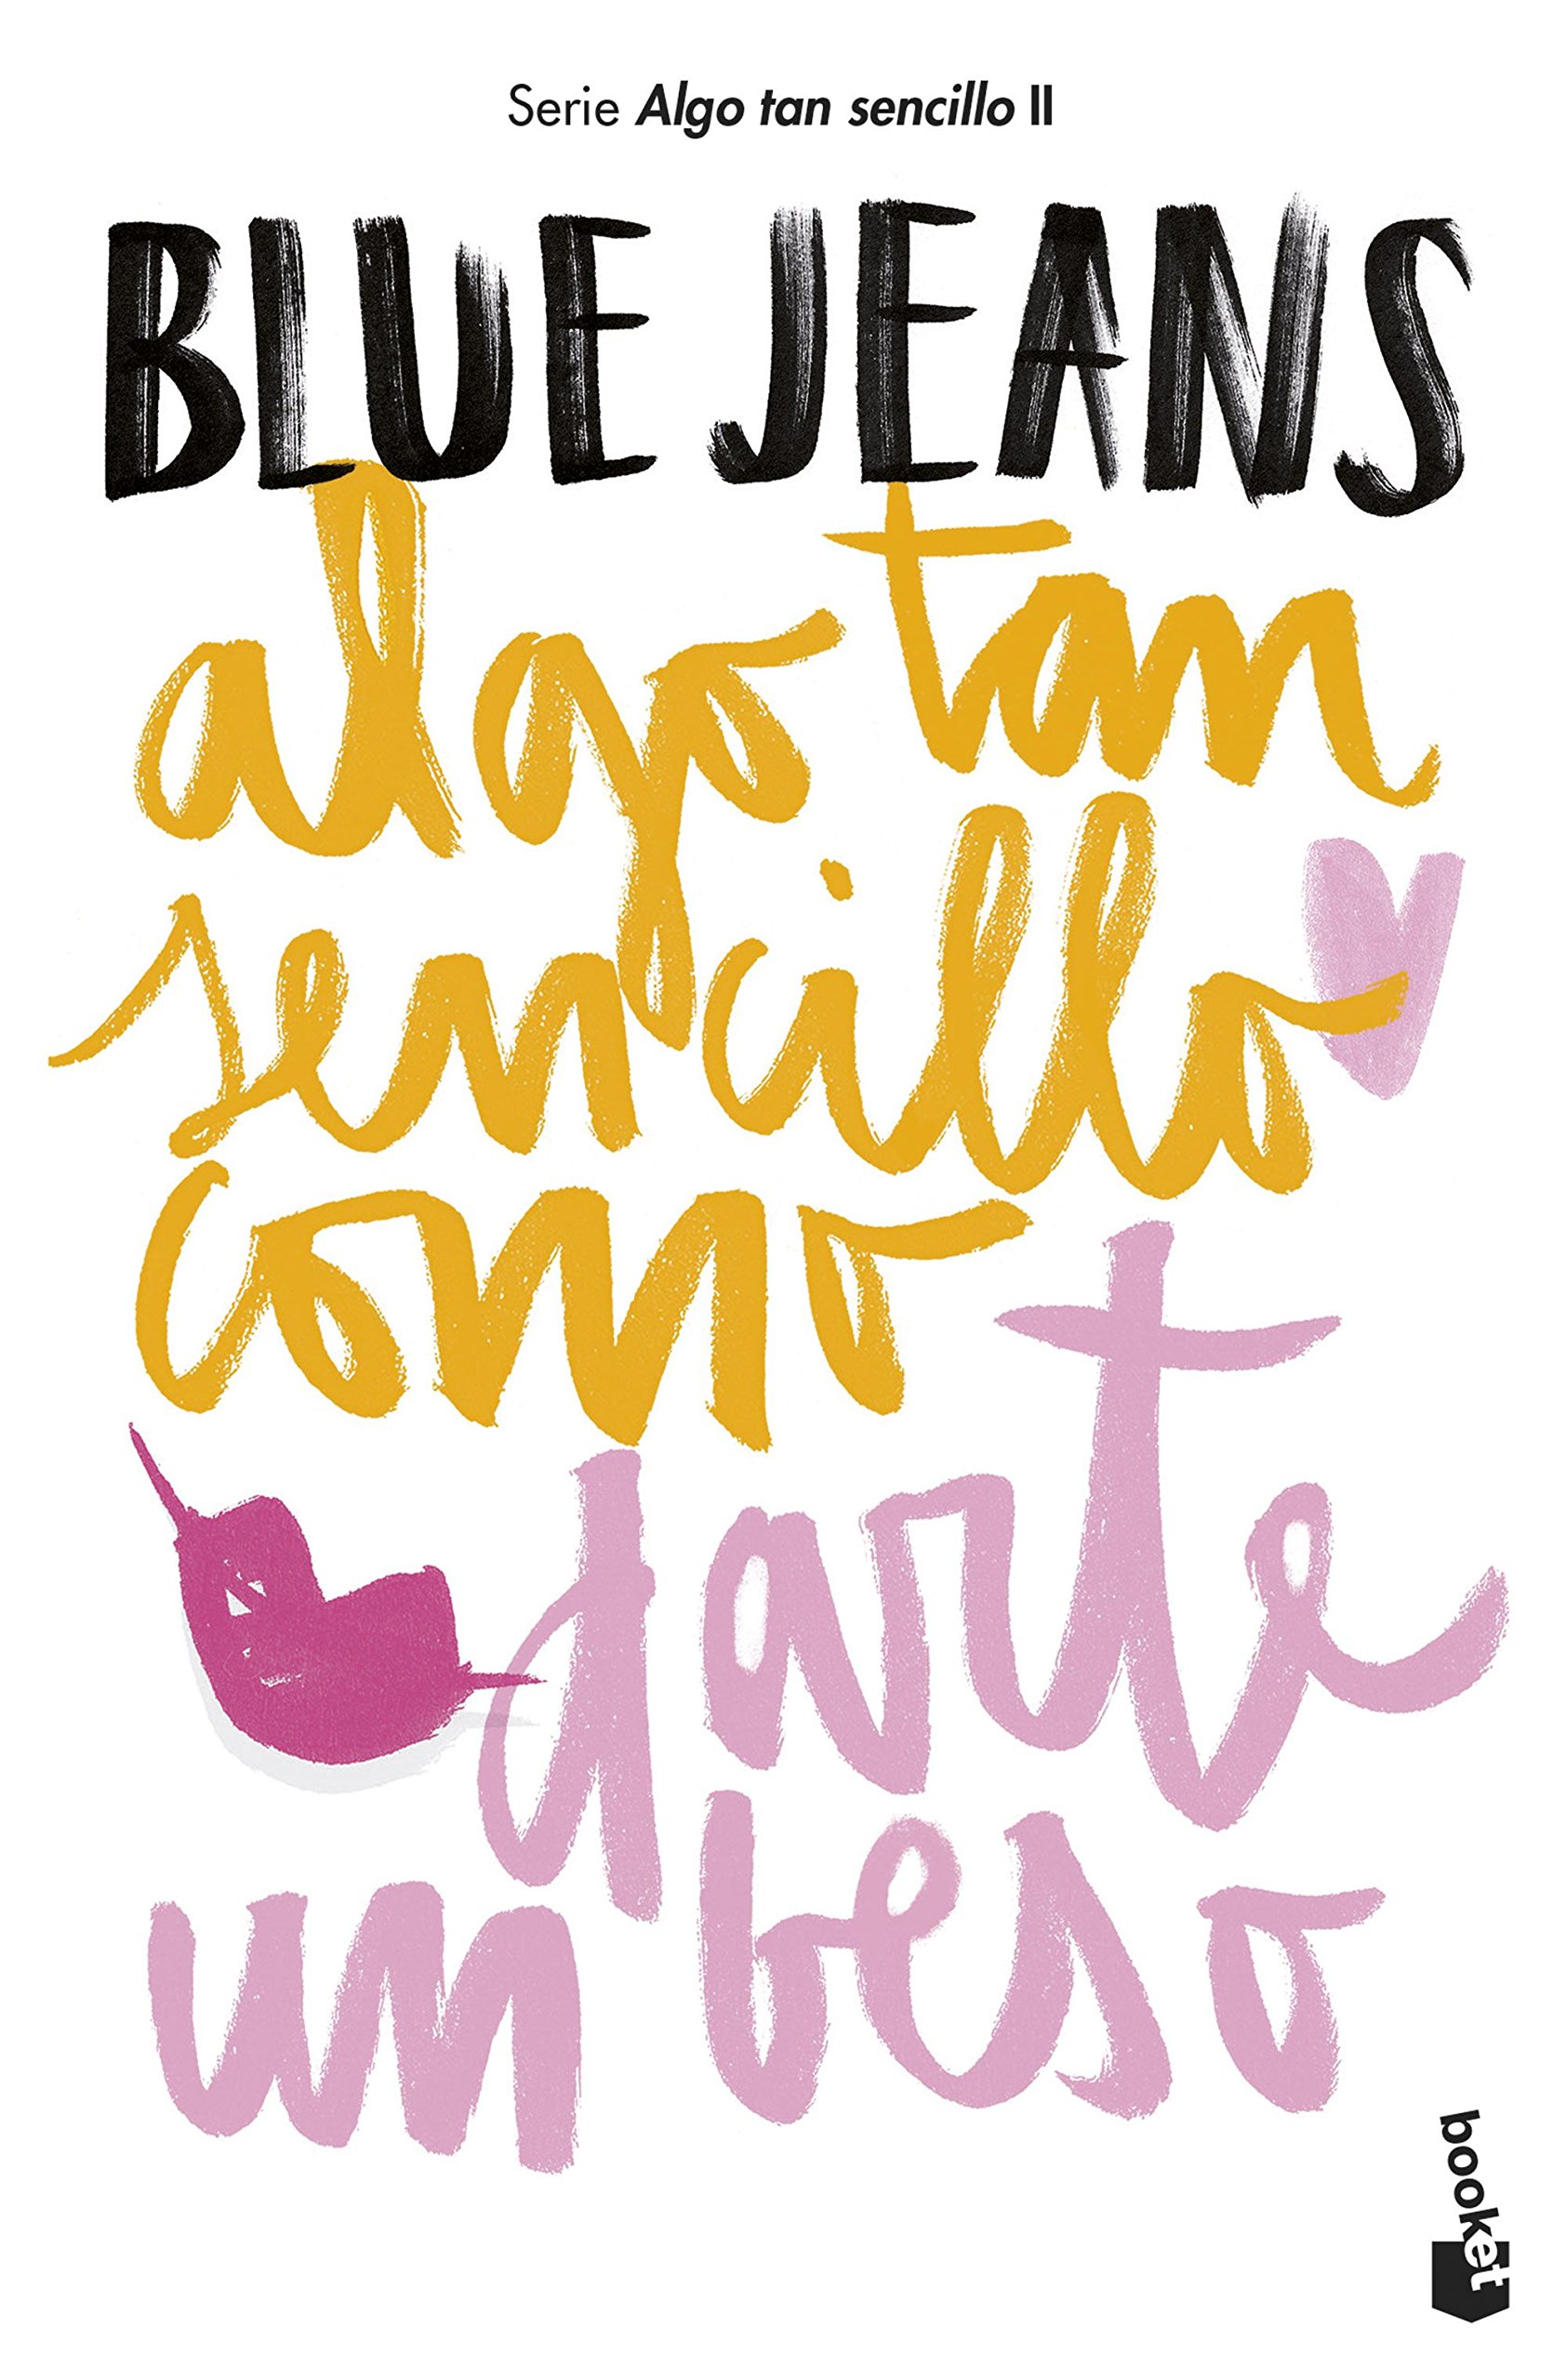 Serie Algo tan sencillo II
BLUE JEANS
algo tan
sencillo
como
darte
un beso
booket